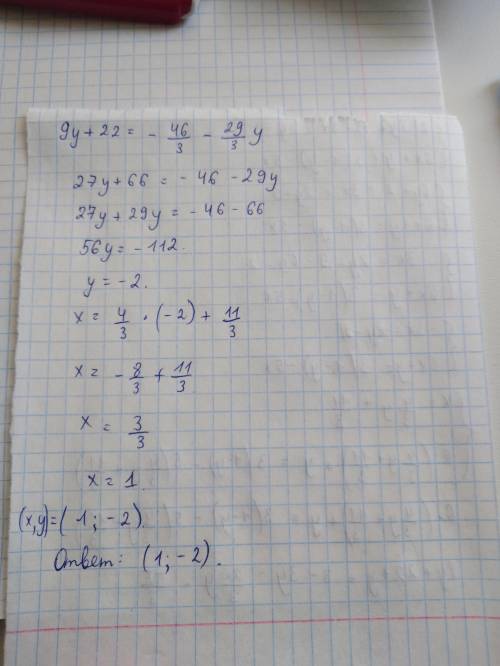 9y + 22 = - 46/3 - 29/3 y
27y + 66 = - 46 - 29y
27y + 29y = - 46 - 66
56y = - 112.
y = - 2.
x = 4/3 · (-2) + 11/3
x = - 8/3 + 11/3
x = 3/3
x = 1.
(x,y) = ( 1 ; - 2 ).
Ответ: ( 1 ; - 2 ).